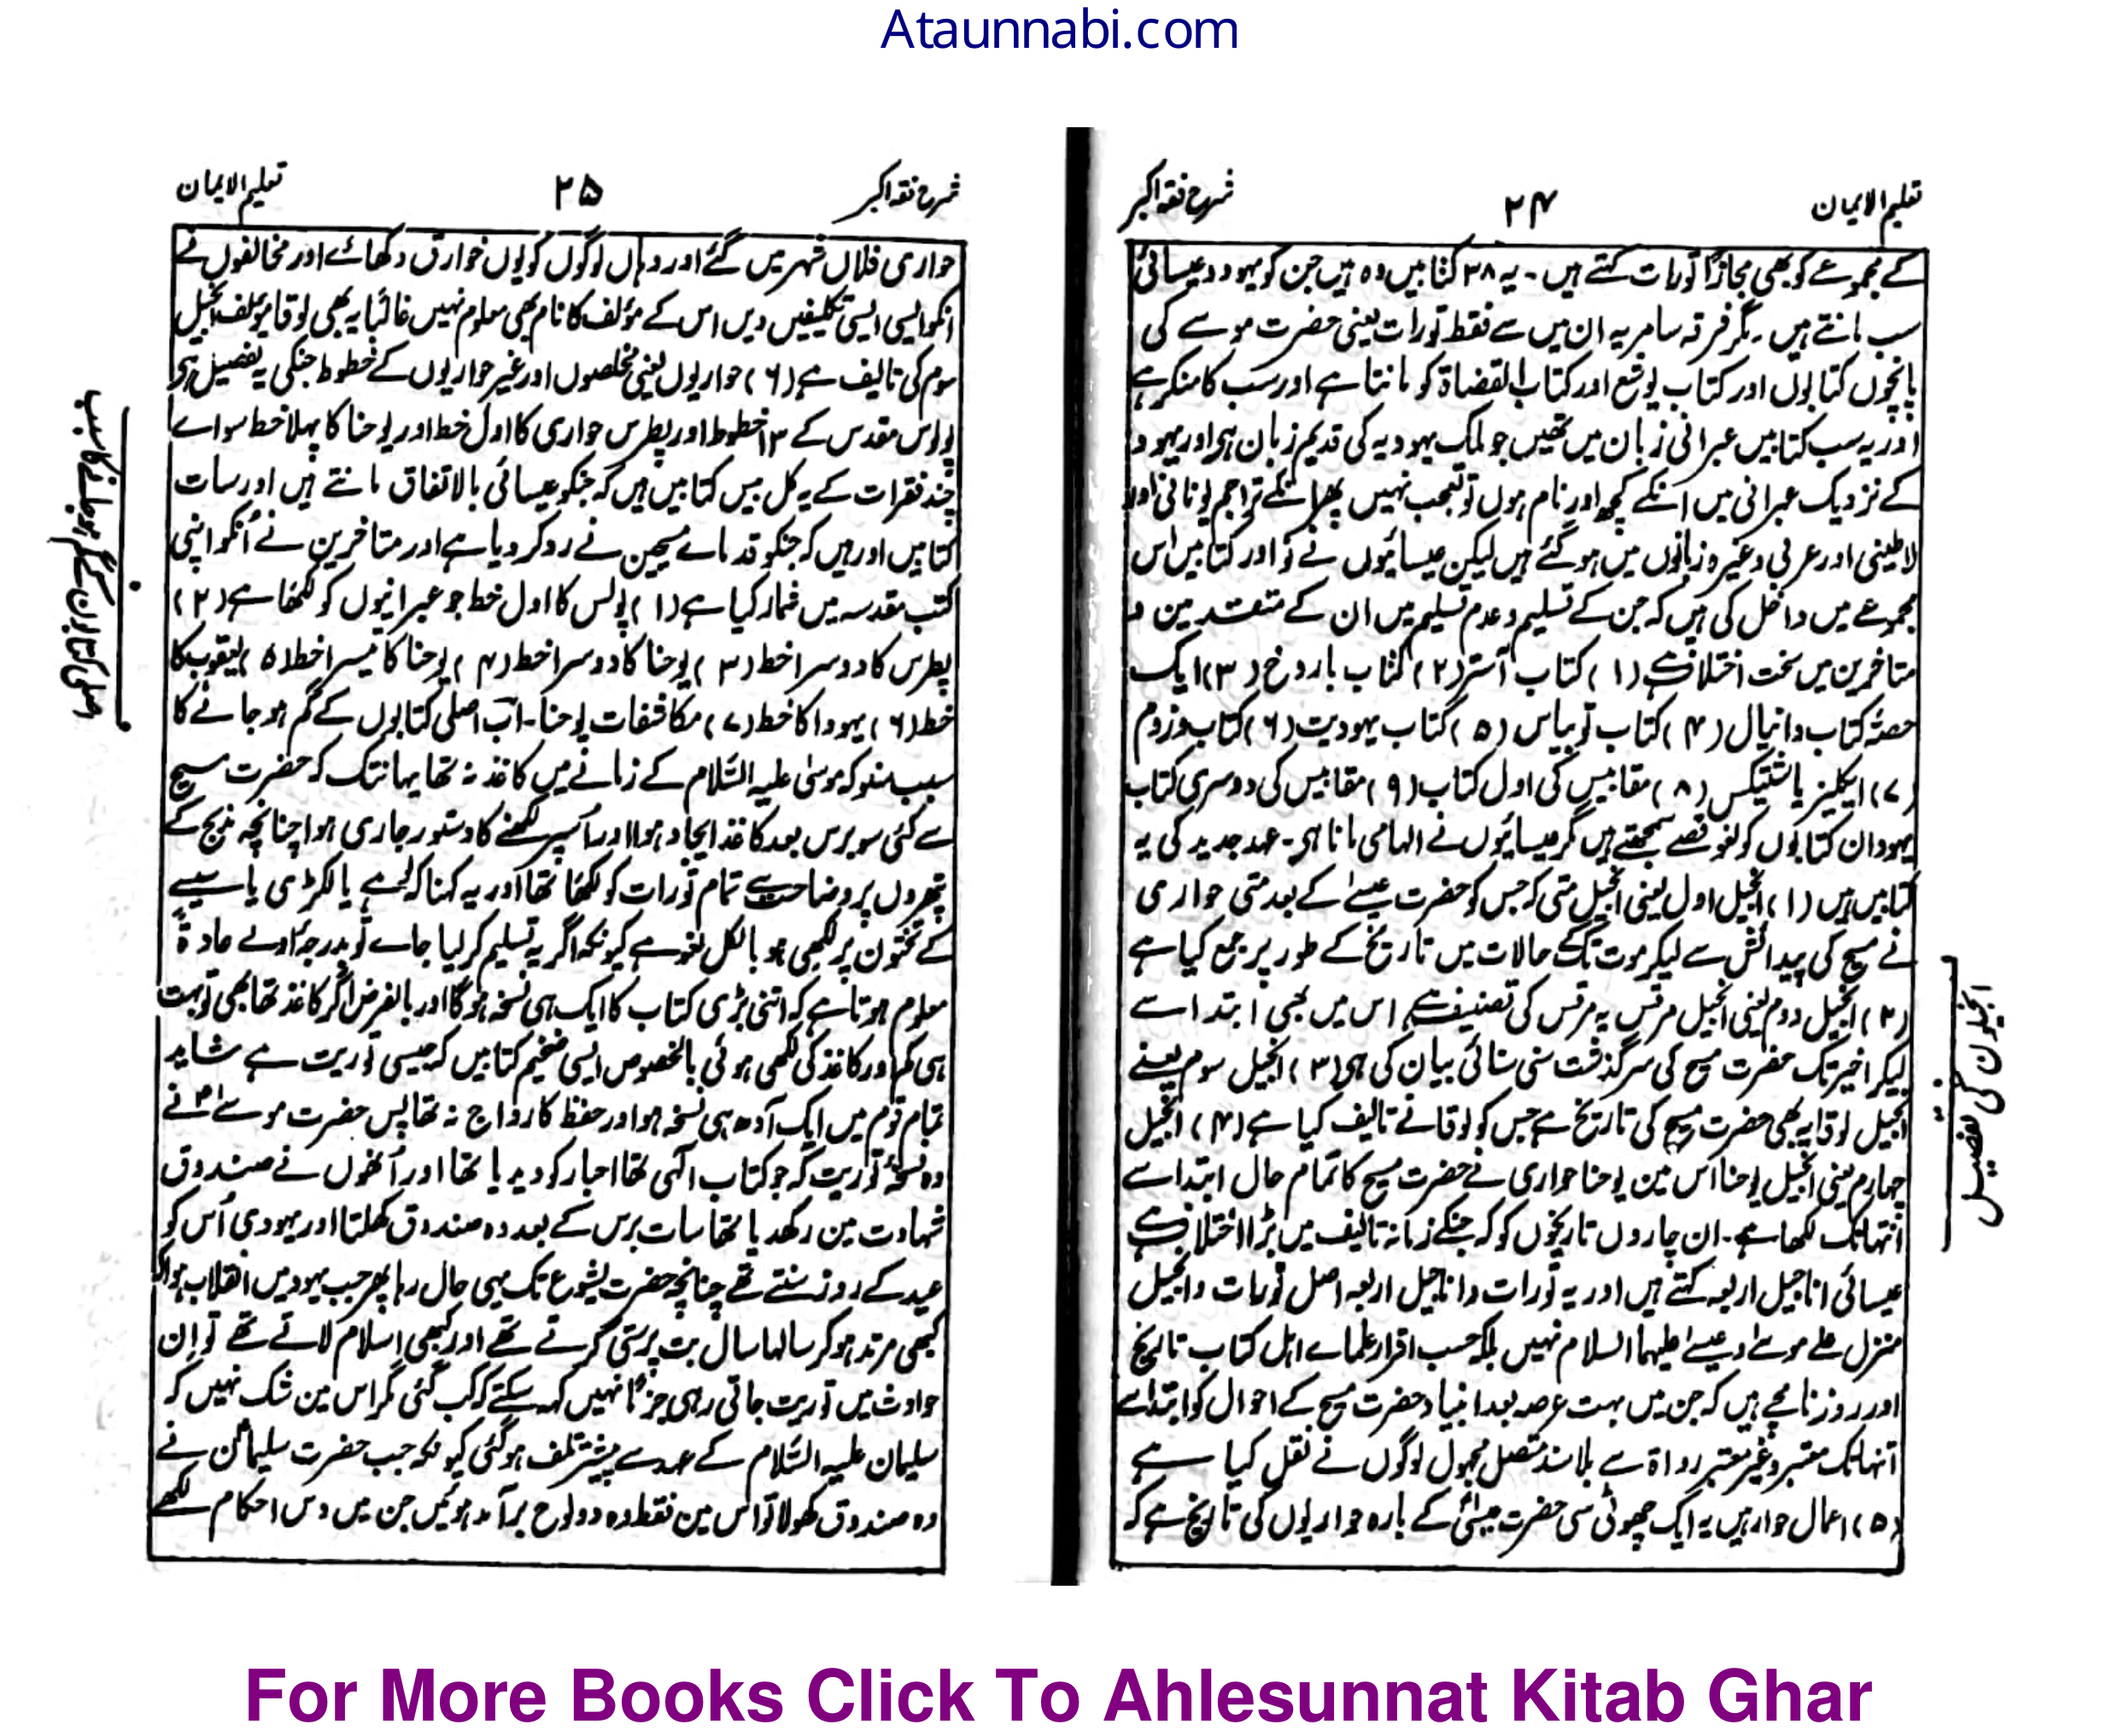 Ataunnabi.com
تعلیم الایمان
۲۴
شرح فقہ اکبر
کے مجموعے کو بھی مجازًا تورات کہتے ہیں ۔ یہ ۳۸ کتابیں وہ ہیں جن کو یہود و عیسائی
سب مانتے ہیں ۔ مگر فرقہ سامریہ ان میں سے فقط تورات یعنی حضرت موسے کی
پانچوں کتابوں اور کتاب یوشع اور کتاب القضاۃ کو مانتا ہے اور سب کا منکر ہے
اور یہ سب کتابیں عبرانی زبان میں تھیں جو ملک یہودیہ کی قدیم زبان ہی اور یہود
کے نزدیک عبرانی میں انکے کچھ اور نام ہوں تو تعجب نہیں پھر انکے تراجم یونانی اور
لاطینی اور عربی وغیرہ زبانوں میں ہو گئے ہیں لیکن عیسائیوں نے نو اور کتابیں اس
مجموعے میں داخل کی ہیں کہ جن کے تسلیم و عدم تسلیم میں ان کے متقدمین و
متاخرین میں سخت اختلاف ہے (۱) کتاب آستر (۲) کتاب باروخ (۳) ایک
حصّۂ کتاب دانیال (۴) کتاب توبیاس (۵) کتاب یہودیت (۶) کتاب وزدم
(۷) ایکلیزیاشتیکس (۸) مقابیس کی اول کتاب (۹) مقابیس کی دوسری کتاب
یہود ان کتابوں کو لغو قصے سمجھتے ہیں مگر عیسائیوں نے الہامی مانا ہی ۔ عہد جدید کی یہ
کتابیں ہیں (۱) انجیل اول یعنی انجیل متی کہ جس کو حضرت عیسےٰ کے بعد متی حواری
نے مسیح کی پیدائش سے لیکر موت تک کے حالات میں تاریخ کے طور پر جمع کیا ہے
(۲) انجیل دوم یعنی انجیل مرقس یہ مرقس کی تصنیف ہے اس میں بھی ابتدا سے
لیکر اخیر تک حضرت مسیح کی سرگذشت سنی سنائی بیان کی ہی (۳) انجیل سوم یعنے
انجیل لوقا یہ بھی حضرت مسیح کی تاریخ ہے جس کو لوقا نے تالیف کیا ہے (۴) انجیل
چہارم یعنی انجیل یوحنا اس مین یوحنا حواری نے حضرت مسیح کا تمام حال ابتدا سے
انتہا تک لکھا ہے ۔ ان چاروں تاریخوں کو کہ جنکے زمانہ تالیف میں بڑا اختلاف ہے
عیسائی اناجیل اربعہ کہتے ہیں اور یہ تورات و اناجیل اربعہ اصل تورات و انجیل
منزل علے موسےٰ و عیسےٰ علیہما السلام نہیں بلکہ حسب اقرار علماے اہل کتاب تاریخ
اور روزنامچے ہیں کہ جن میں بہت عرصہ بعد انبیا و حضرت مسیح کے احوال کو ابتدا سے
انتہا تک معتبر و غیر معتبر رواۃ سے بلا سند متصل مجہول لوگوں نے نقل کیا ہے
(۵) اعمال حوارییں یہ ایک چھوٹی سی حضرت عیسیٰ کے بارہ حواریوں کی تاریخ ہے کہ
انجیلون کی تفصیل
شرح فقہ اکبر
۲۵
تعلیم الایمان
حواری فلاں شہر میں گئے اور وہاں لوگوں کو یوں خوارق دکھائے اور مخالفوں نے
انکو ایسی ایسی تکلیفیں دیں اس کے مؤلف کا نام بھی معلوم نہیں غالبًا یہ بھی لوقا مؤلف انجیل
سوم کی تالیف ہے (۶) حواریوں یعنی مخلصوں اور غیر حواریوں کے خطوط جنکی یہ تفصیل ہی
پولوس مقدس کے ۱۳ خطوط اور پطرس حواری کا اول خط اور یوحنا کا پہلا خط سواے
چند فقرات کے یہ کل بیس کتابیں ہیں کہ جنکو عیسائی بالاتفاق مانتے ہیں اور سات
کتابیں اور ہیں کہ جنکو قدماے مسیحین نے رد کر دیا ہے اور متاخرین نے اُنکو اپنی
کتب مقدسہ میں شمار کیا ہے (۱) پولس کا اول خط جو عبرانیوں کو لکھا ہے (۲)
پطرس کا دوسرا خط (۳) یوحنا کا دوسرا خط (۴) یوحنا کا تیسرا خط (۵) یعقوب کا
خط (۶) یہودا کا خط (۷) مکاشفات یوحنا ۔ اب اصلی کتابوں کے گم ہو جانے کا
سبب سنو کہ موسیٰ علیہ السّلام کے زمانے میں کاغذ نہ تھا یہانتک کہ حضرت مسیح
سے کئی سو برس بعد کاغذ ایجاد ہوا اور اُسپر لکھنے کا دستور جاری ہوا چنانچہ مذبح کے
پتھروں پر وضاحت سے تمام تورات کو لکھا تھا اور یہ کہنا کہ لمبے یا لکڑی یا سیسے
کے تختون پر لکھی ہو بالکل لغو ہے کیونکہ اگر یہ تسلیم کر لیا جاے تو بدرجۂ اولے عادۃً
معلوم ہوتا ہے کہ اتنی بڑی کتاب کا ایک ہی نسخہ ہوگا اور بالفرض اگر کاغذ تھا بھی تو بہت
ہی کم اور کاغذ کی لکھی ہوئی بالخصوص ایسی ضخیم کتابیں کہ جیسی توریت ہے شاید
تمام قوم میں ایک آدہ ہی نسخہ ہو اور حفظ کا رواج نہ تھا پس حضرت موسےٰ نے
وہ نسخۂ توریت کہ جو کتاب الٰہی تھا احبار کو دیدیا تھا اور اُنھوں نے صندوق
شہادت مین رکھدیا تھا سات برس کے بعد وہ صندوق کھلتا اور یہودی اُس کو
عید کے روز سنتے تھے چنانچہ حضرت یشوع تک یہی حال رہا پھر جب یہود میں انقلاب ہوا کہ
کبھی مرتد ہو کر سالہا سال بت پرستی کرتے تھے اور کبھی اسلام لاتے تھے تو اِن
حوادث میں توریت جاتی رہی جزمًا نہیں کہہ سکتے کہ کب گئی مگر اس مین شک نہیں کہ
سلیمان علیہ السّلام کے عہد سے پیشتر تلف ہو گئی کیونکہ جب حضرت سلیمان نے
وہ صندوق کھولا تو اس مین فقط وہ دو لوح برآمد ہوئیں جن میں دس احکام لکھے
اصلی کتابون کے گم ہو جانے کا سبب
For More Books Click To Ahlesunnat Kitab Ghar